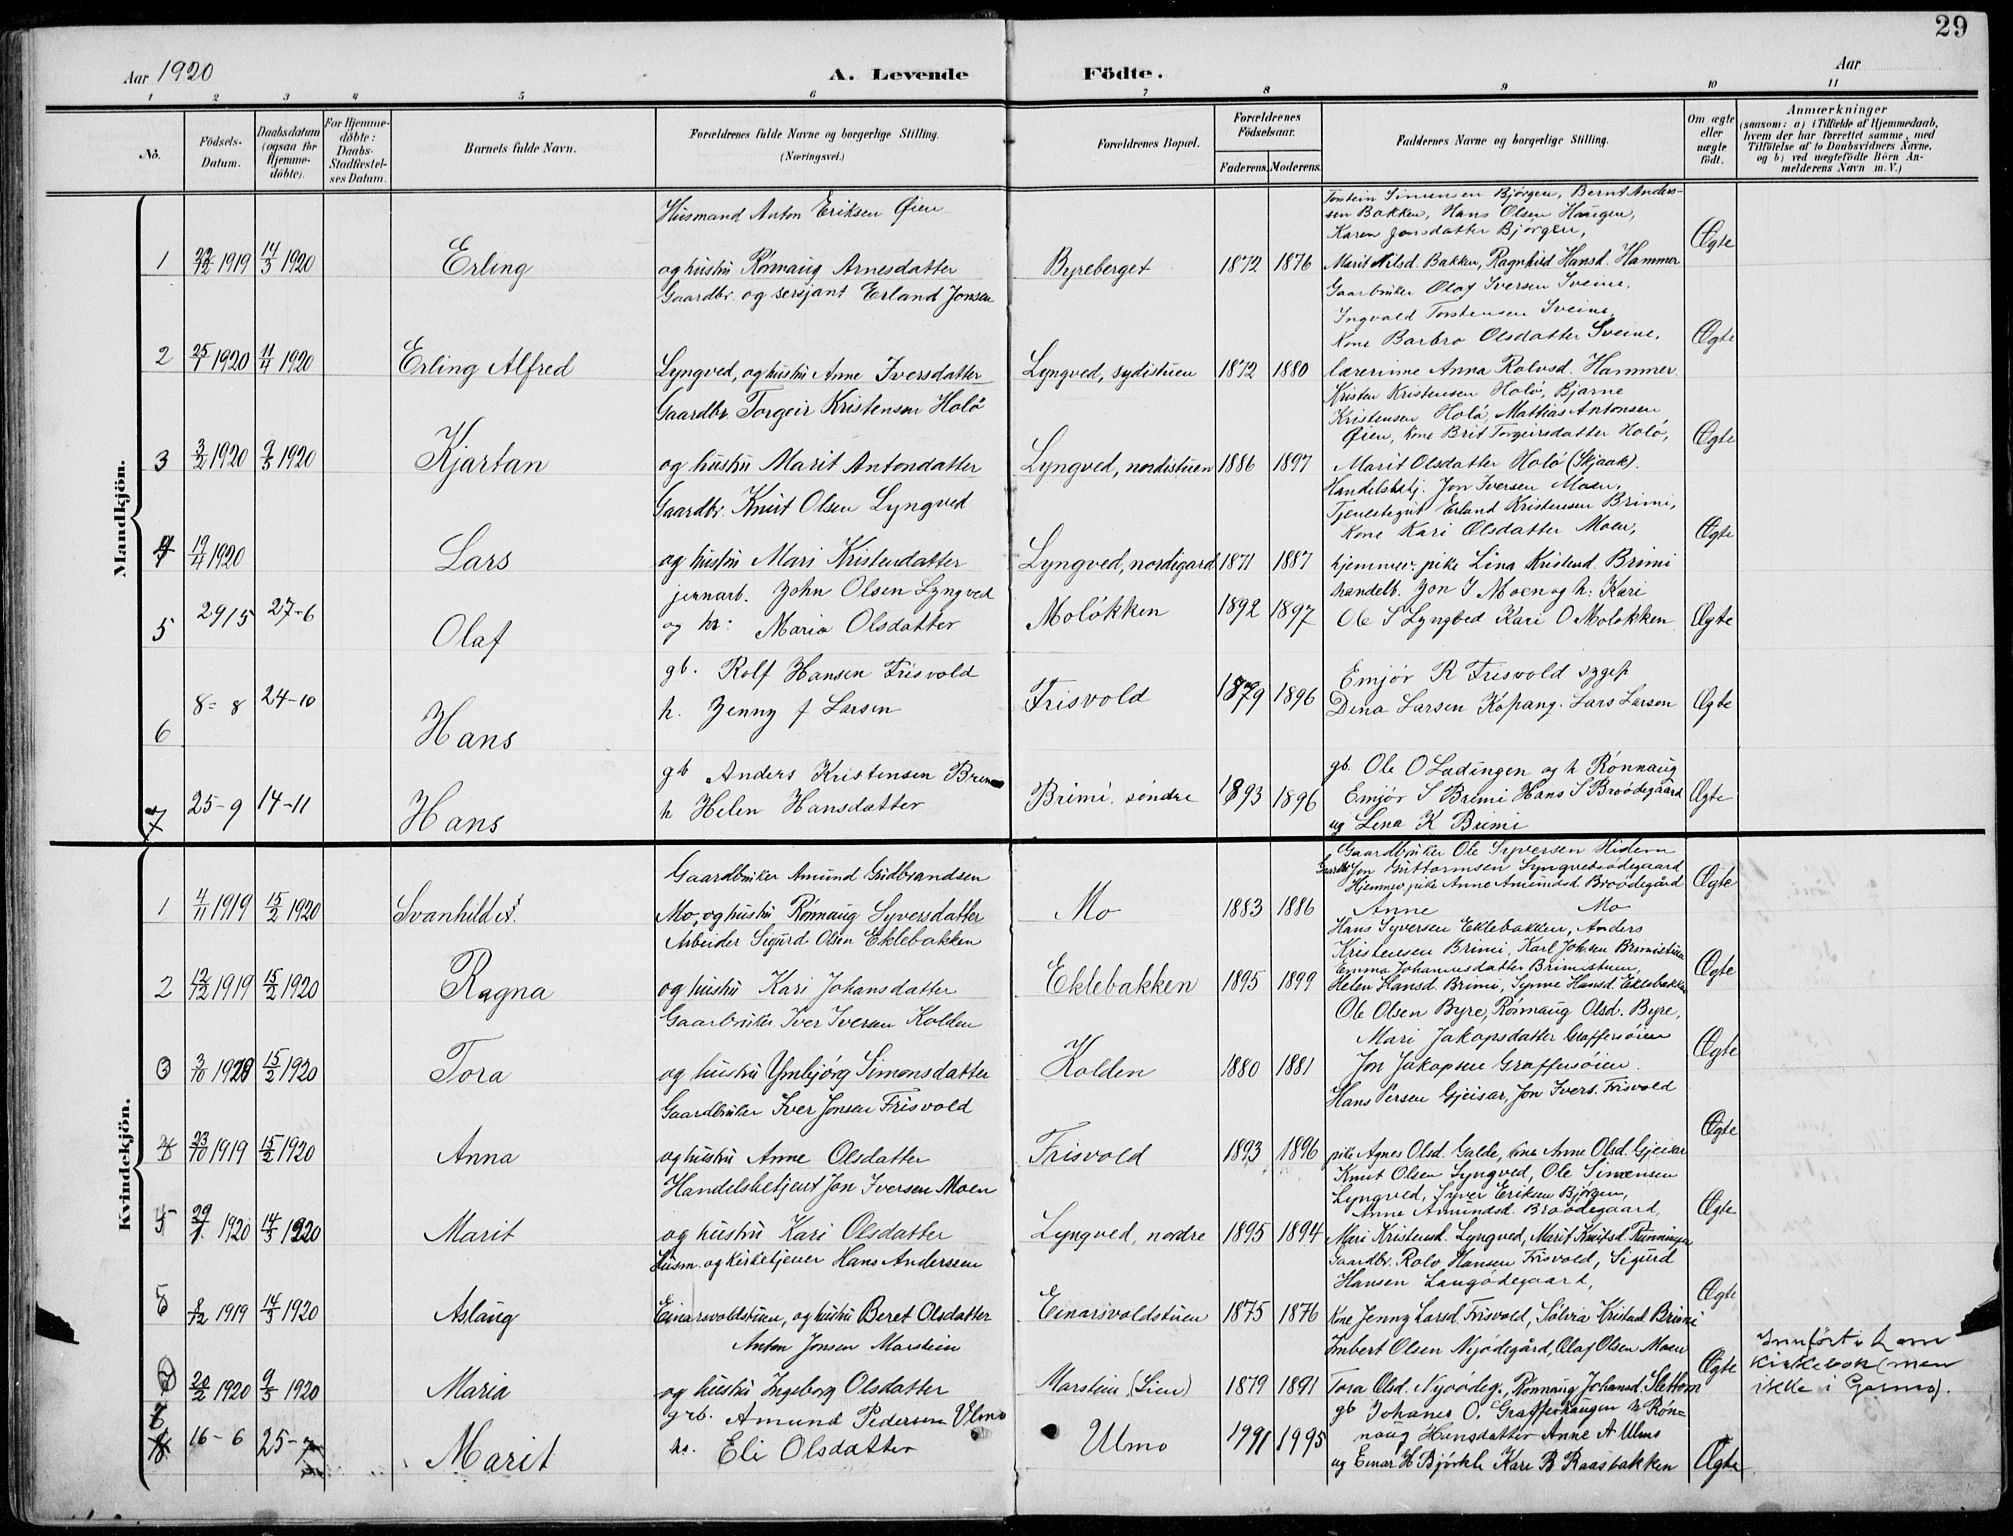 29
Aar 1920
A. Levende
Födte.
Aar
1 2 3 4 5 6 7 8 9 10 11
No.
Födsels-
Datum.
Daabsdatum
(ogsaa for
Hjemme-
döbte).
For Hjemme-
döbte:
Daabs-
Stadfæstel-
ses Datum.
Barnets fulde Navn.
Forældrenes fulde Navne og borgerlige Stilling.
(Næringsvei.)
Forældrenes Bopæl.
Forældrenes
Födselsaar.
Faderens.
Moderens.
Faddernes Navne og borgerlige Stilling.
Om ægte
eller
uægte
födt.
Anmærkninger
(saasom: a) i Tilfælde af Hjemmedaab,
hvem der har forrettet samme, med
Tilföielse af to Daabsvidners Navne,
og b) ved uægtefödte Börn An-
melderens Navn m. V.)
Mandkjön.
Husmand Anton Eriksen Øien
Torstein Simensen Bjørgen, Bernt Anders-
sen Bakken, Hans Olsen Haugen,
Karen Jonsdatter Bjørgen,
1 22/12 1919 14/3 1920 Erling og hustru Rønnaug Arnesdatter Byreberget 1872 1876 Marit Nilsd. Bakken, Ragnhild Hansd. Hammer Ægte
Gaardbr. og sersjant Erland Jonsen
Gaarbruker Olaf Iversen Sveine,
Ingvald Torstensen Sveine,
Kone Barbro Olsdatter Sveine,
2 25/1 1920 11/4 1920 Erling Alfred Lyngved, og hustru Anne Iversdatter Lyngved, sydistuen 1872 1880 lærerinne Anna Rolvsd. Hammer Ægte
Gaardbr. Torgeir Kristensen Holö
Kristen Kristensen Holö, Bjarne
Kristensen Holö, Mattias Antonsen
Øien, kone Brit Torgeirsdatter Holö,
3 3/2 1920 9/5 1920 Kjartan og hustru Marit Antondatter Lyngved, nordistuen 1886 1897 Marit Olsdatter Holö (Skjaak). Ægte
Gaardbr. Knut Olsen Lyngved
Handelsbetj. Jon Iversen Moen,
Tjenestegut Erland Kristensen Brimi,
Kone Kari Olsdatter Moen,
4 19/4 1920 Lars og hustru Mari Kristensdatter Lyngved, nordigard 1871 1887 hjemmev. pike Lina Kristend. Brimi Ægte
jernarb. John Olsen Lyngved
handelb. Jon I Moen og h: Kari
5 29/5 27-6 Olaf og hr: Maria Olsdatter Molökken 1892 1897 Ole S Lyngved Kari O Molökken Ægte
gb. Rolf Hansen Frisvold
Emjör R Frisvold sygep
6 8-8 24-10 Hans h. Jenny J Larsen Frisvold 1879 1896 Dina Larsen Kópang. Lars Larsen Ægte
gb Anders Kristensen Brimi
gb. Ole O Ladingen og h Rönnaug
7 25-9 14-11 Hans h Helen Hansdatter Brimi söndre 1893 1896 Emjör S Brimi Hans S Broödegaard Ægte
og Lena K Brimi
Kvindekjön.
Gaardbruker Amund Gudbrandsen
Gaardbruker Ole Syversen Hidem
Gaardbr. Jon Guttormsen Lyngvedsödegaard
Hjemmev. pike Anne Amundsd Broödegård
1 4/11 1919 15/2 1920 Svanhild Mo, og hustru Rønnaug Syversdatter Mo 1883 1886 Anne Mo Ægte
Arbeider Sigurd Olsen Eklebakken
Hans Syversen Eklebakken, Anders
Kristensen Brimi, Karl Johsen Brimistuen
Emma Johannesdatter Brimistuen,
2 12/12 1919 15/2 1920 Ragna og hustru Kari Johansdatter Eklebakken 1895 1899 Helen Hansd. Brimi, Synne Hansd. Eklebakken Ægte
Gaarbruker Iver Iversen Kolden
Ole Olsen Byre, Rønnaug Olsd. Byre,
Mari Jakopsdatter Graffersöien
3 3/10 1920 15/2 1920 Tora og hustru Ymbjørg Simonsdatter Kolden 1880 1881 Jon Jakopsen Graffersöien. Ægte
Gaardbruker Iver Jonsen Frisvold
Hans Persen Gjeisar, Jon Ivers. Frisvold
4 23/10 1919 15/2 1920 Anna og hustru Anne Olsdatter Frisvold 1893 1896 pike Agnes Olsd. Galde, kone Anne Olsd. Gjeisar Ægte
Handelsbetjent Jon Iversen Moen
Knut Olsen Lyngved, Ole Simensen
Lyngved, Syver Eriksen Bjørgen,
Anne Amundsd. Broödegaard,
5 29/1 1920 14/3 1920 Marit og hustru Kari Olsdatter Lyngved, nordre 1895 1894 Mari Kristensd. Lyngved, Marit Knutsd. Runningen Ægte
Husm. og kirketjener Hans Anderssen
Gaardbr. Rolv Hansen Frisvold, Sigurd
Hansen Laugödegaard,
8/12 1919 14/3 1920 Aslaug Einarsvoldstuen, og hustru Beret Olsdatter Einarsvoldstuen 1875 1876 Kone Jenny Larsd. Frisvold, Sølvia Kristend. Brimi Ægte
Anton Jonsen Marstein
Imbert Olsen Nyödegård, Olaf Olsen Moen
20/2 1920 9/5 1920 Maria og hustru Ingeborg Olsdatter Marstein (Lien) 1879 1891 Tora Olsd. Nyöödeg., Rønnaug Johansd. Slettom Ægte
Innført i Lom
kirkebok (men
ikke i Garmo).
grb. Amund Pedersen Ulmo
gb Johanes O. Grafferhaugen h Røn-
naug Hansdatter Anne A Ulmo
8 16-6 25-7 Marit hr. Eli Olsdatter Ulmo 1991 1995 og Einar H Bjørkli Kari B Raasbakken Ægte